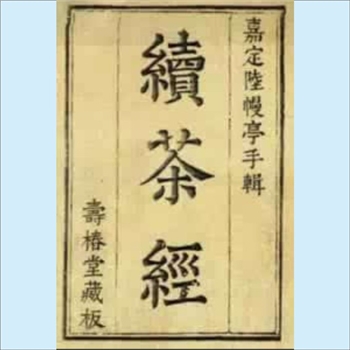 嘉定陸幔亭手輯
續茶經
壽椿堂藏板